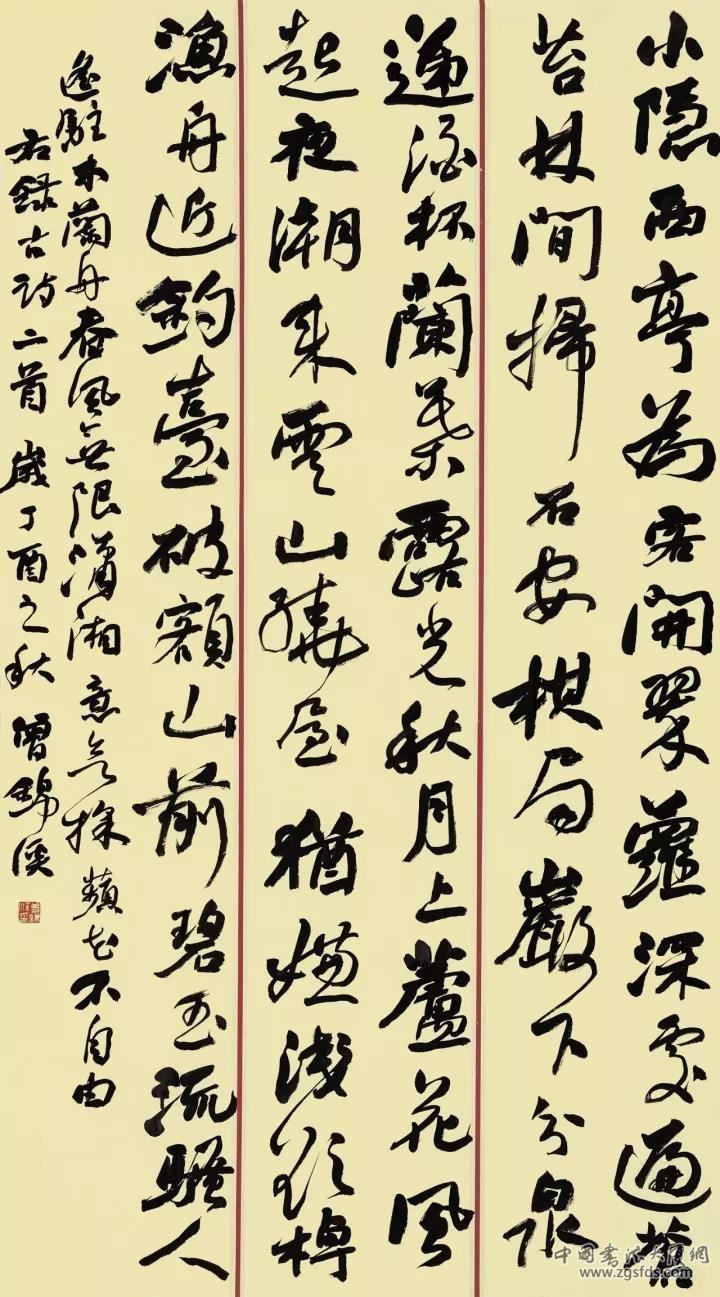 小隱西亭為客開翠蘿深處遍蒼
苔林間掃石安棋局巖下分泉
遞酒杯蘭葉露光秋月上蘆花風
起夜潮來雲山繞屋猶嫌淺欲棹
漁舟近釣臺破額山前碧玉流騷人
遙駐木蘭舟春風無限瀟湘意欲採蘋花不自由
右錄古詩二首 歲丁酉之秋 曾錦溪
www.zgsfds.com